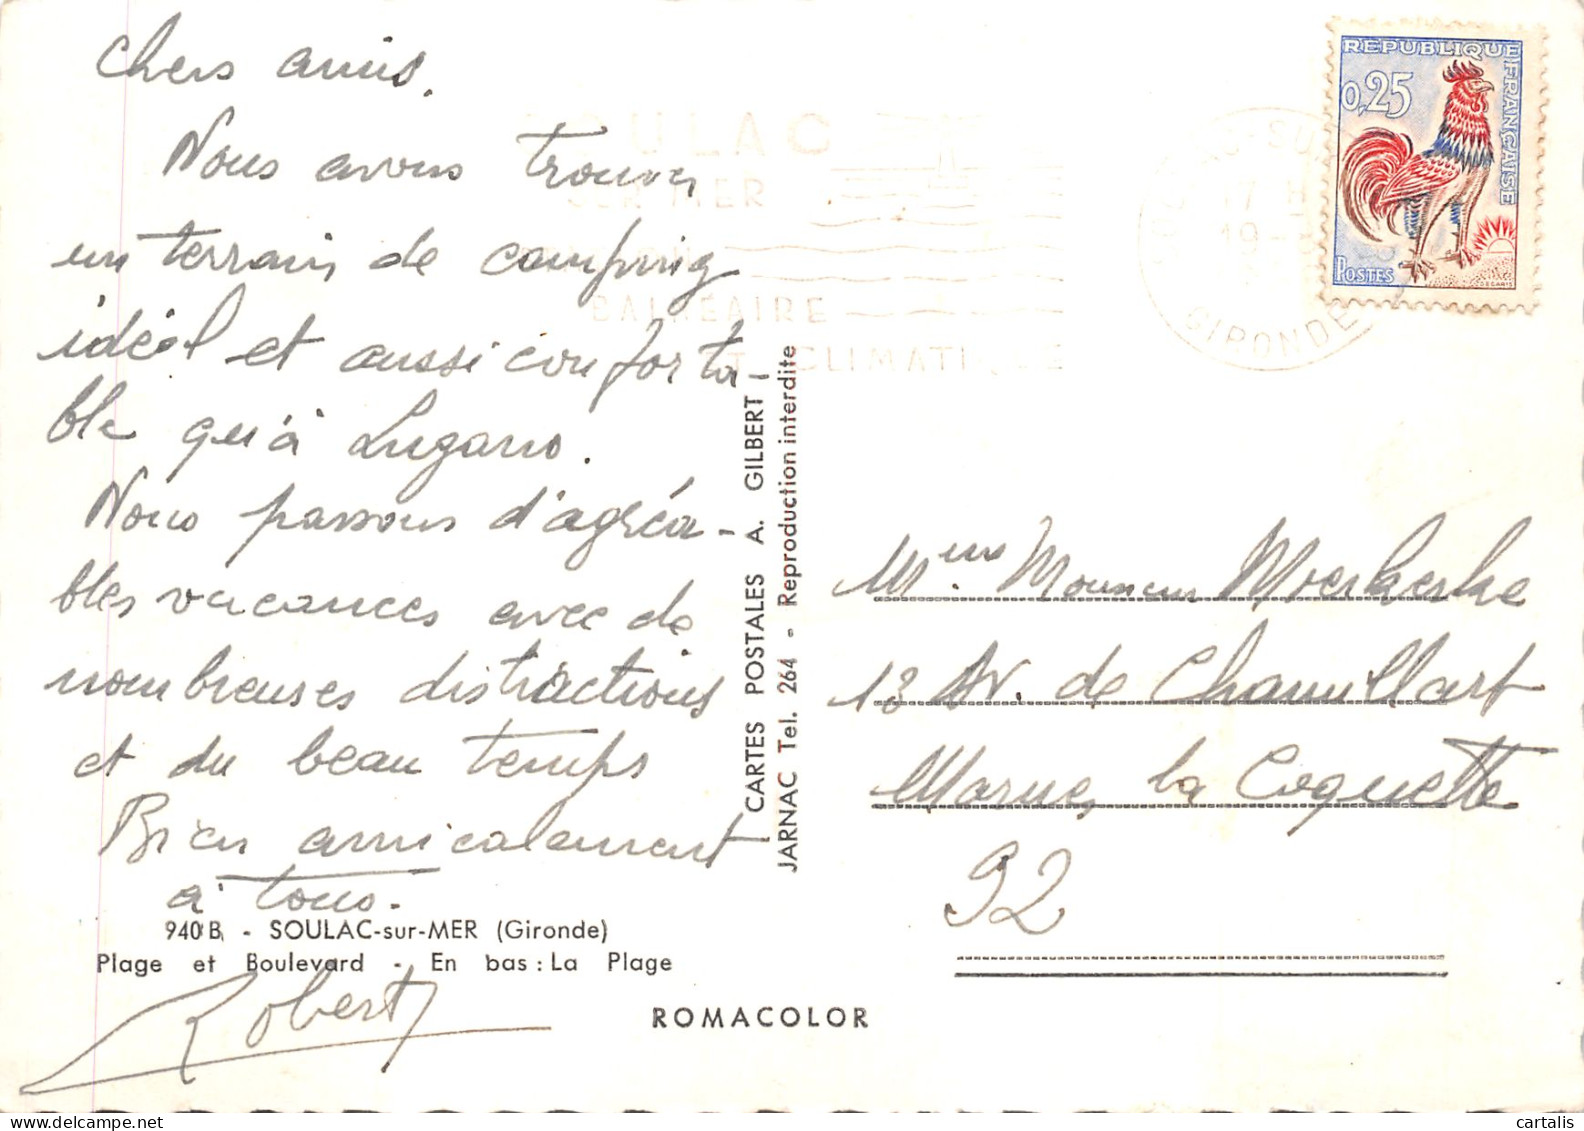 Chers amis.
Nous avons trouver
un terrain de camping
idéal et aussi conforta-
ble qu'à Lugano.
Nous passons d'agréa-
bles vacances avec de
nombreuses distractions
et du beau temps
Bien amicalement
à tous.
940 B. - SOULAC-sur-MER (Gironde)
Plage et Boulevard - En bas : La Plage
Robert
ROMACOLOR
CARTES POSTALES A. GILBERT
JARNAC Tel. 264 - Reproduction interdite
SOULAC
SUR MER
BALNÉAIRE
ET CLIMATIQUE
17 H
19 -
GIRONDE
REPUBLIQUE FRANÇAISE
0,25
POSTES
DECARIS
Monsieur
13 Av. de
Marnes la Coquette
92
cartalis